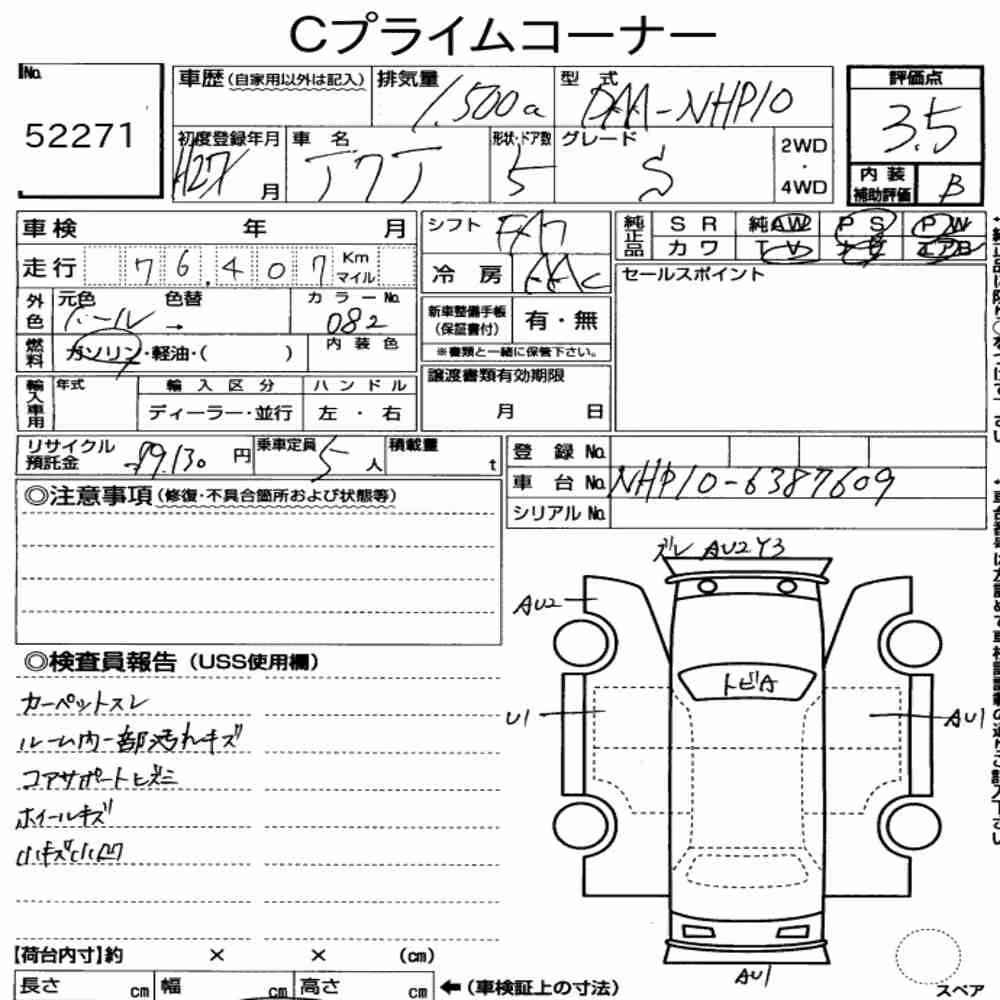 Cプライムコーナー
No. 52271
車歴(自家用以外は記入) 排気量 1,500cc 型 式 DAA-NHP10 評価点 3.5
初度登録年月 H27 月 車 名 アクア 形状・ドア数 5 グレード S 2WD・4WD 内装補助評価 B
車検 年 月 シフト FA 純正品 SR 純AW PS PW
カワ TV ナビ エアB
走行 76,407 Km マイル 冷 房 AAC
セールスポイント
外色 元色 パール 色替 → カラーNo. 082
新車整備手帳(保証書付) 有・無
※書類と一緒に保管下さい。
燃料 ガソリン・軽油・( ) 内装色
輸入車用 年式 輸入区分 ハンドル
ディーラー・並行 左・右
譲渡書類有効期限
月 日
リサイクル預託金 円 乗車定員 5 人 積載量 t
登 録 No.
車 台 No. NHP10-6387609
シリアル No.
◎注意事項(修復・不具合箇所および状態等)
ズレ AU2 Y3
AU2
トビA
U1
AU1
AU1
◎検査員報告(USS使用欄)
カーペットスレ
ルーム内一部汚れキズ
コアサポートヒズミ
ホイールキズ
小キズ小凹
【荷台内寸】約 × × (cm)
長さ cm 幅 cm 高さ cm ←(車検証上の寸法)
スペア